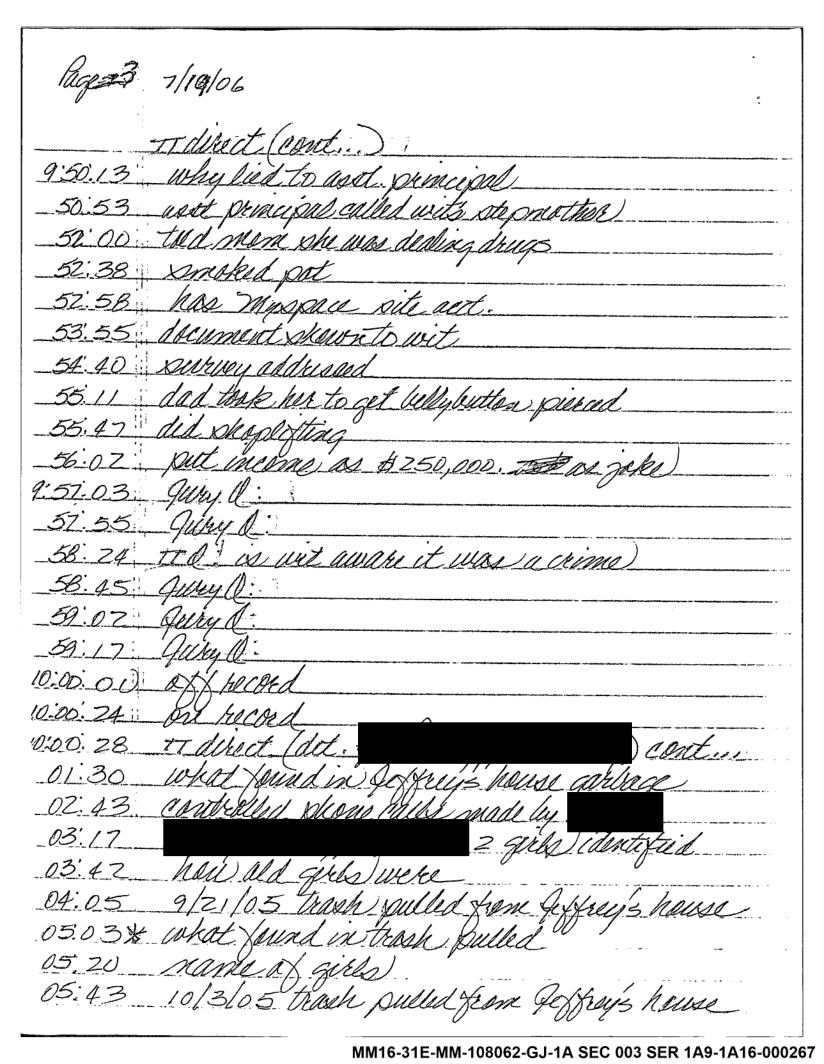 Page 3 7/19/06
π direct (cont...)
9:50.13 why lied to asst. principal
50:53 asst principal called wit's stepmother
52:00 told mom she was dealing drugs
52:38 smoked pot
52:58 has Myspace site acct.
53:55 document shown to wit
54:40 survey addressed
55:11 dad took her to get bellybutton pierced
55:47 did shoplifting
56:02 put income as $250,000. as joke
9:57:03 Jury Q:
57:55 Jury Q:
58:24 π Q: is wit aware it was a crime
58:45 Jury Q:
59:02 Jury Q:
59:17 Jury Q:
10:00:00 off record
10:00:24 on record
10:00:28 π direct (det. ) cont...
01:30 what found in Jeffrey's house garbage
02:43 controlled phone calls made by
03:17 2 girls identified
03:42 how old girls were
04:05 9/21/05 trash pulled from Jeffrey's house
05:03* what found in trash pulled
05:20 name of girls
05:43 10/3/05 trash pulled from Jeffrey's house
MM16-31E-MM-108062-GJ-1A SEC 003 SER 1A9-1A16-000267